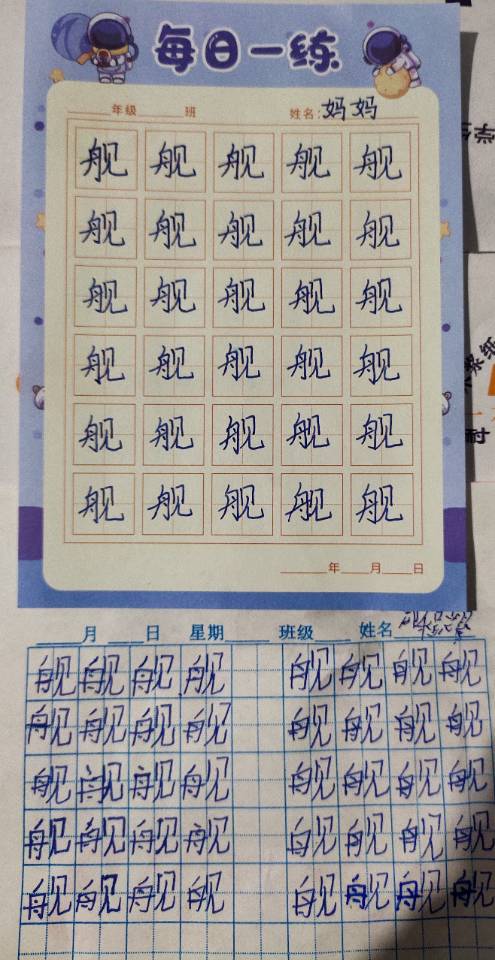 每日一练
年级 班 姓名：妈妈
舰 舰 舰 舰 舰
舰 舰 舰 舰 舰
舰 舰 舰 舰 舰
舰 舰 舰 舰 舰
舰 舰 舰 舰 舰
舰 舰 舰 舰 舰
年 月 日
月 日 星期 班级 姓名
舰 舰 舰 舰 舰 舰 舰 舰
舰 舰 舰 舰 舰 舰 舰 舰
舰 舰 舰 舰 舰 舰 舰 舰
舰 舰 舰 舰 舰 舰 舰 舰
舰 舰 舰 舰 舰 舰 舰 舰